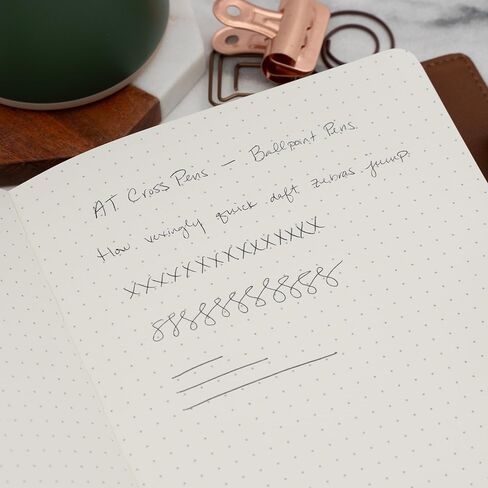 AT Cross Pens — Ballpoint Pens.
How vexingly quick daft zebras jump.
XXXXXXXXXXXXXXX
88888888888